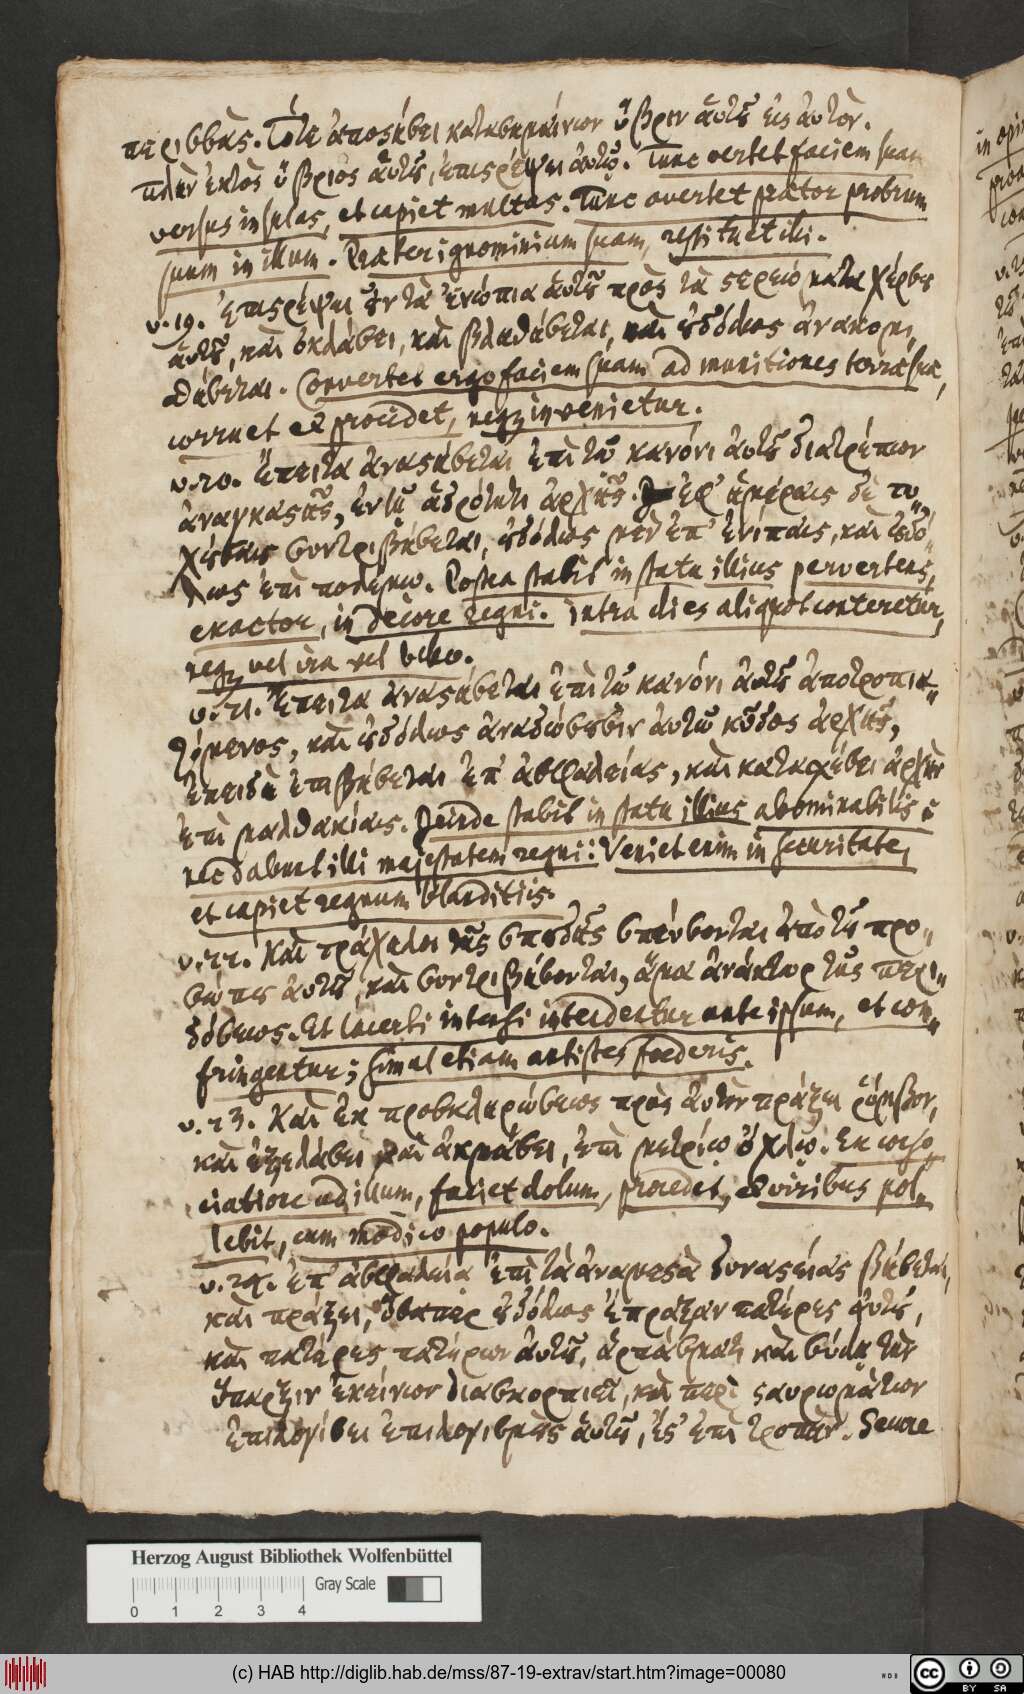 περισσὰς. Τότε ἀποσήβει καταβαμαίνων ὕβριν ἀυτῦ εἰς ἀυτὸν.
πλὴν ἐκτὸς ὕβριος ἀυτῦ, ἐπιςρέψει ἀυτῷ. Tunc vertet faciem suam
versus insulas, et capiet multas. Tunc avertet prætor probrum
suum in illum. Præter ignominium suam, restituet illi.
v. 19. Ἐπιςρέψει ἐν τὰ ἐνώπια ἀυτῦ πρὸς τὰ ςερεὼ κατα χέρσε
ἀυτῦ, καὶ ὀκλάσει, καὶ βλαθήσεται, καὶ ὐδόλως ἀνακορη,
θήσεται. Convertet ergo faciem suam ad munitiones terræ suæ,
corruet et procidet, neq; invenietur.
v. 20. Ἔπειτα ἀναςήσεται ἐπὶ τῷ κανόνι ἀυτῦ διατρέπων
ἀναγκαςὴς, ἐν τῇ ἁδρότητι ἀρχῆς. ἐφ' ἡμέραις δὲ τυ,,
χύσαις συντριβήσεται, ὐδόλως μὲν ἐπ' ἐνίπαις, καὶ ὐδό,,
λως ἐπὶ πολέμω. Postea stabit in statu illius pervertens,
exactor, in decore regni. Intra dies aliquot conteretur,
neq; vel ira vel bello.
v. 21. Ἔπειτα ἀναςήσεται ἐπὶ τῷ κανόνι ἀυτῦ ἀποτροπια,,
ζόμενος, καὶ ὐδόλως ἀναδώσυσιν ἀυτῷ κῦδος ἀρχῆς,
ἐπειδὴ ἐπιβήσεται ἐπ' ἀσφαλείας, καὶ καταχέσει ἀρχὴν
ἐπὶ μαλθακίαις. Deinde stabit in statu illius abominabilis :
nec dabunt illi majestatem regni: Veniet enim in securitate,
et capiet regnum blanditiis.
v. 22. Καὶ τράχηλοι τῆς σπυδῆς σπεύσονται ἀπὸ τῦ προ,,
σώπυ ἀυτῦ, καὶ συντριβήσονται, ἅμα ἀνάκτωρ τῆς περι,,
δόσεως. Et lacerti intensi intendentur ante ipsum, et con,,
fringentur; simul etiam antistes foederis.
v. 23. Καὶ ἐκ προσκληρώσεως πρὸς ἀυτὸν πράξει ῥόμβον,
καὶ ἐξελάσει καὶ ἀκμάσει, ἐπὶ μετρίῳ ὄχλῳ. Ex conso,,
ciatione ad illum, faciet dolum, procedet, et viribus pol,,
lebit, cum modico populo.
v. 24. Ἐπ' ἀσφαλεία ἐπὶ τὰ ἀναμεςὰ δυναςείας βήσεται,
καὶ πράξει, ὥσπερ ὐδόλως ἐπράξαν πατέρες ἀυτῦ,
καὶ πατέρες πατέρων ἀυτῦ, ἁρπάσματι καὶ σύλη τὴν
ὕπαρξιν ἐκείνων διασκορπιεῖ, καὶ περὶ ςαυρωμάτων
ἐπιλογίσει ἐπιλογισμὺς ἀυτῦ, ἐς ἐπιτροπὴν. Secure
Herzog August Bibliothek Wolfenbüttel
Gray Scale
0 1 2 3 4
(c) HAB http://diglib.hab.de/mss/87-19-extrav/start.htm?image=00080
WDB
cc BY SA